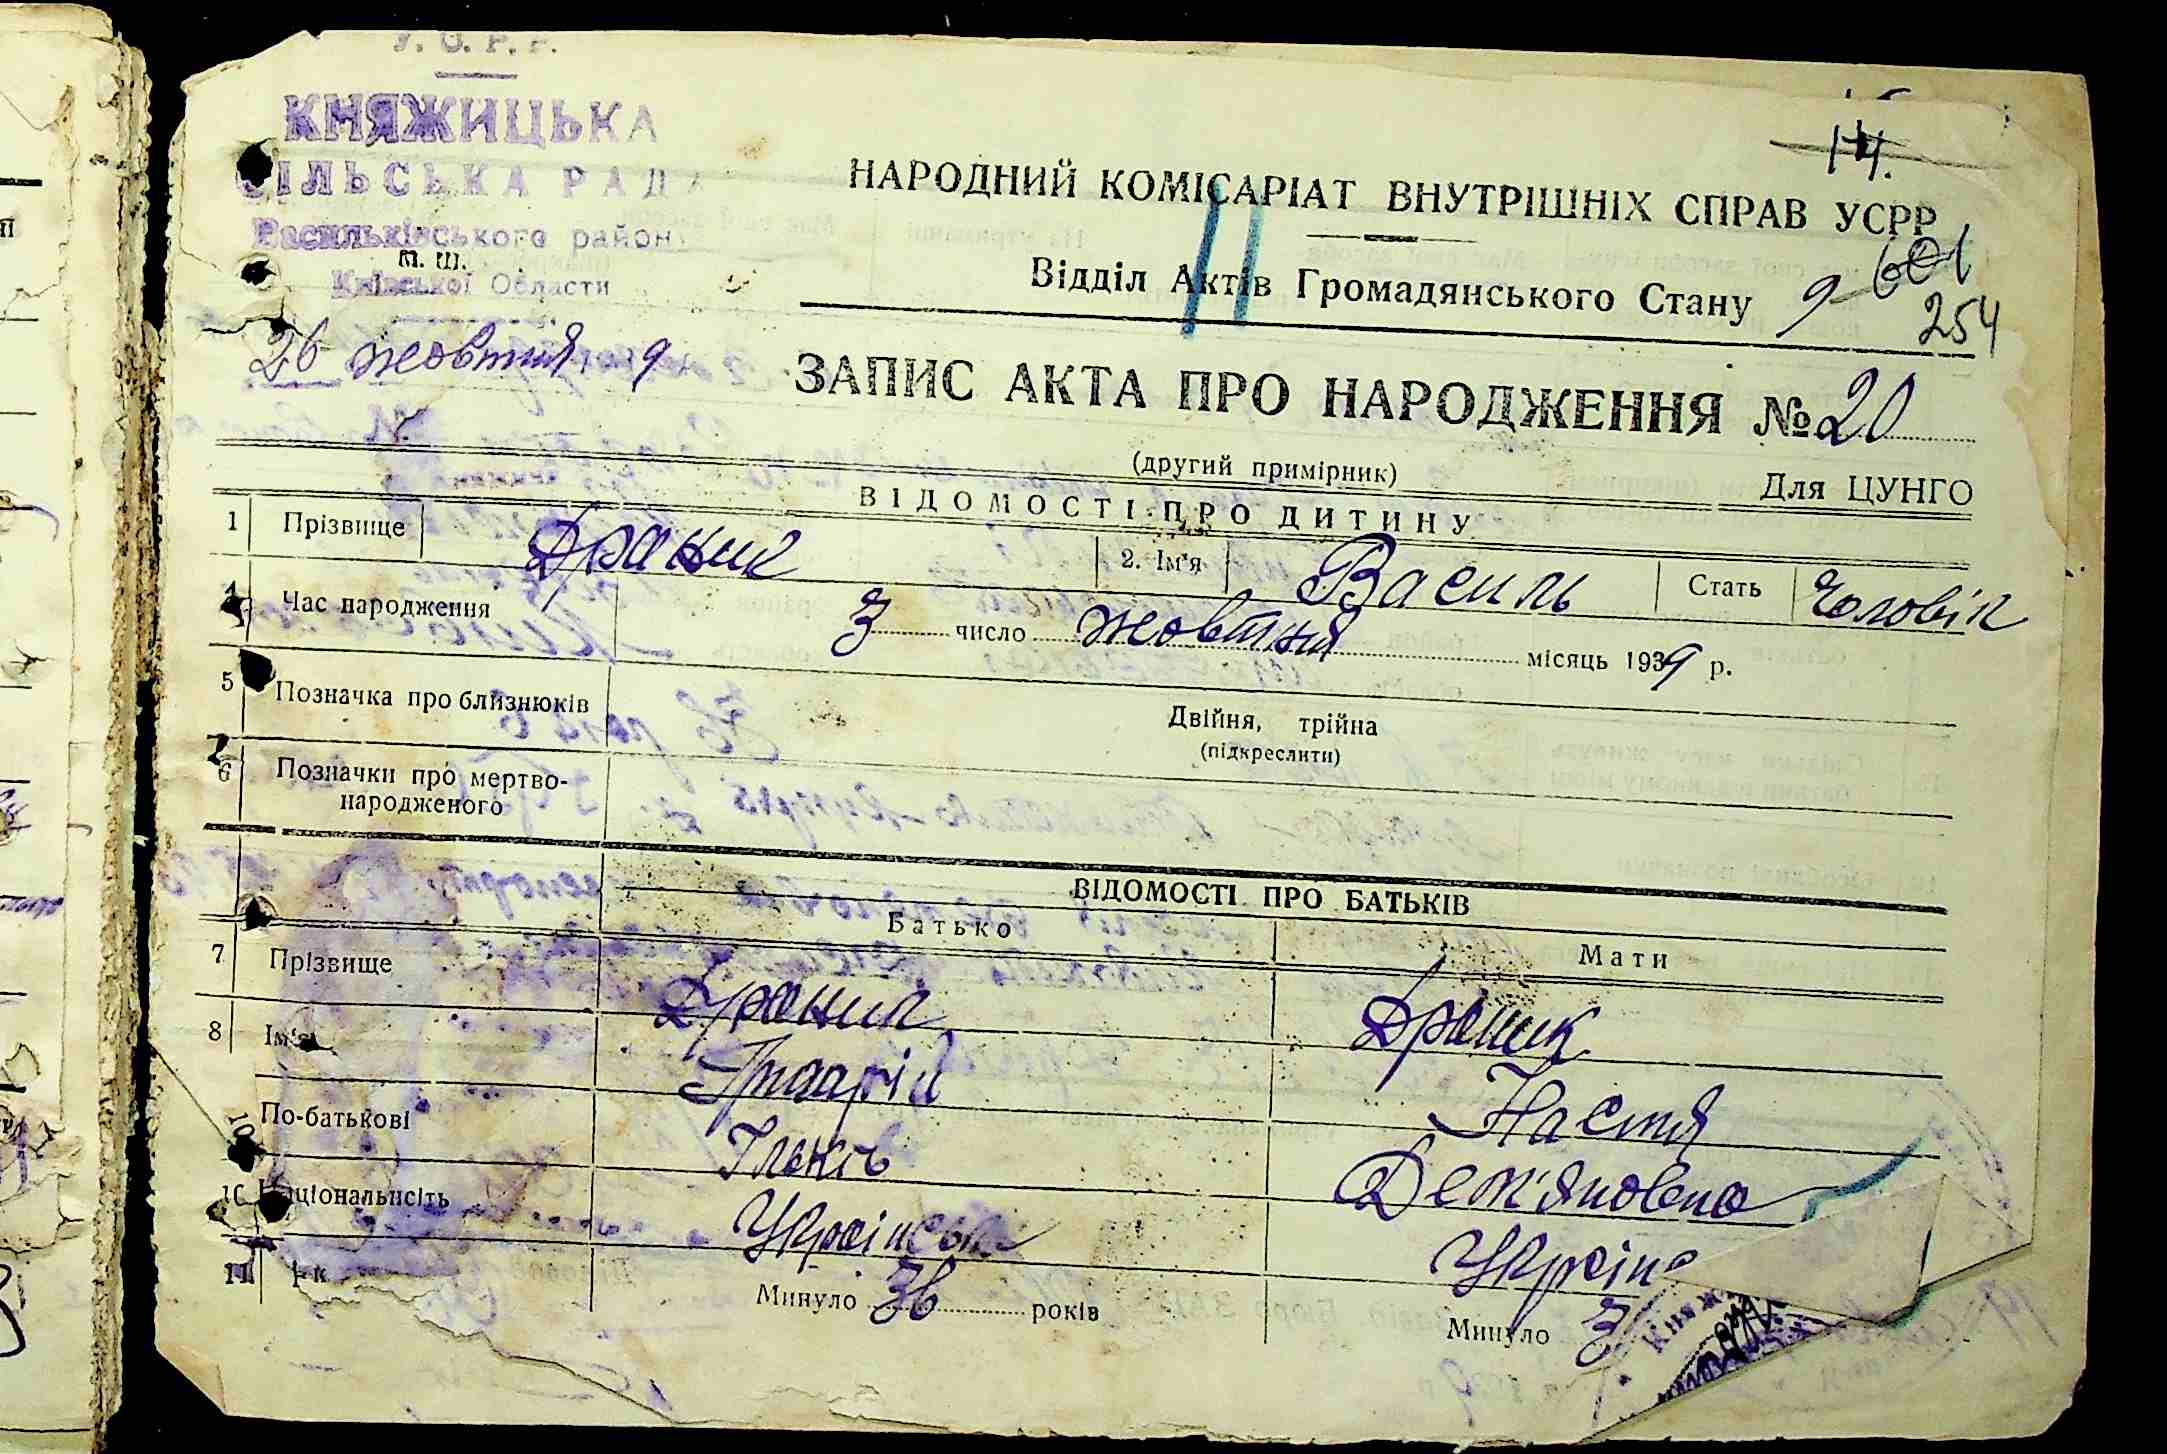 У. С. Р. Р.
КНЯЖИЦЬКА
СІЛЬСЬКА РАДА
Васильківського району
м. ш.
Київської Области
26 жовтня 9
14.
НАРОДНИЙ КОМІСАРІАТ ВНУТРІШНІХ СПРАВ УСРР
Відділ Актів Громадянського Стану 9
601
254
ЗАПИС АКТА ПРО НАРОДЖЕННЯ № 20
(другий примірник)
Для ЦУНГО
ВІДОМОСТІ ПРО ДИТИНУ
1 Прізвище Драник 2. Ім'я Василь Стать Чоловік
4 Час народження 3 число жовтня місяць 1939 р.
5 Позначка про близнюків Двійня, трійна
(підкреслити)
6 Позначки про мертво-
народженого
ВІДОМОСТІ ПРО БАТЬКІВ
Батько Мати
7 Прізвище Драник Драник
8 Ім'я Григорій Настя
По-батькові Дем'яновна
10 Національнсіть Українець Україн
11 Минуло 36 років Минуло 3
Княж